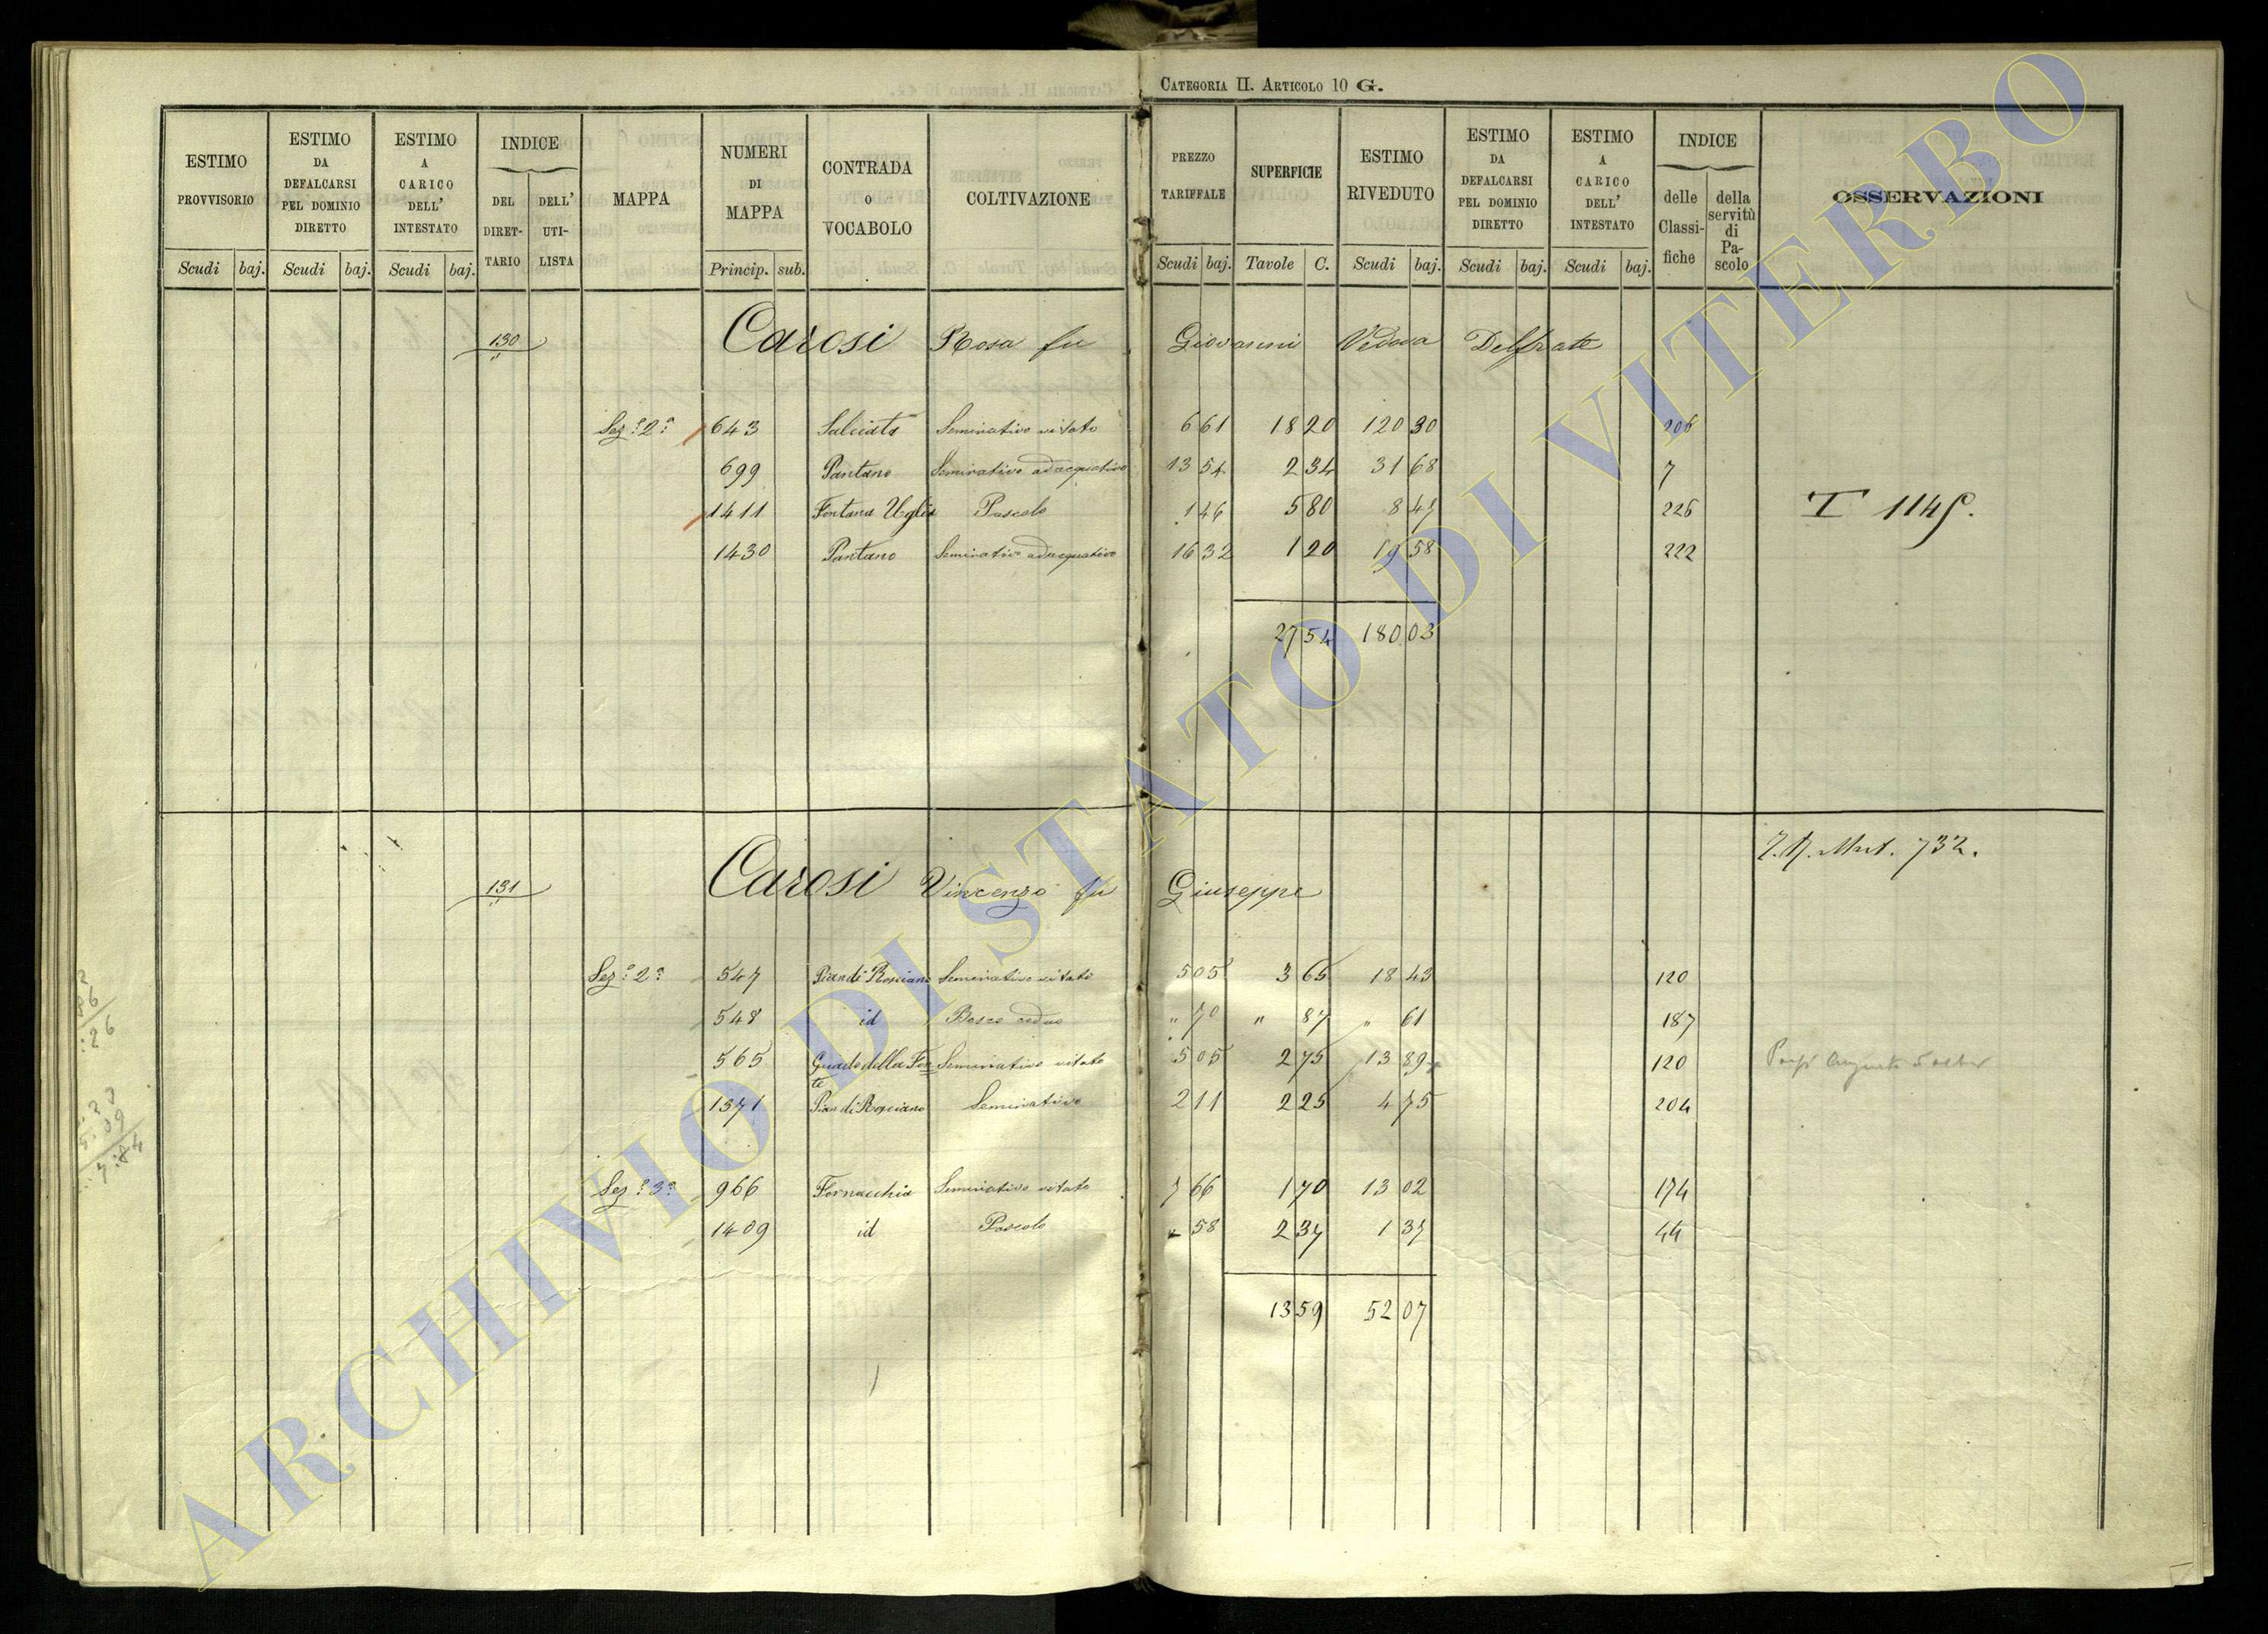 CATEGORIA II. ARTICOLO 10 G.
ESTIMO PROVVISORIO | ESTIMO DA DEFALCARSI PEL DOMINIO DIRETTO | ESTIMO A CARICO DELL' INTESTATO | INDICE DEL DIRETTARIO | DELL' UTILISTA | MAPPA | NUMERI DI MAPPA | CONTRADA O VOCABOLO | COLTIVAZIONE | PREZZO TARIFFALE | SUPERFICIE | ESTIMO RIVEDUTO | ESTIMO DA DEFALCARSI PEL DOMINIO DIRETTO | ESTIMO A CARICO DELL' INTESTATO | INDICE delle Classifiche | della servitù di Pascolo | OSSERVAZIONI
Scudi | baj. | Scudi | baj. | Scudi | baj. | Princip. | sub. | Scudi | baj. | Tavole | C. | Scudi | baj. | Scudi | baj. | Scudi | baj.
130 Carosi Rosa fu Giovanni Vedova Delfrate
Sez.e 2a 643 Salciata Seminativo vitato 6 61 18 20 120 30 206
699 Pantano Seminativo adacquativo 13 54 2 34 31 68 7
1411 Fontana Uglia Pascolo 1 46 5 80 8 47 226 T 1145.
1430 Pantano Seminativo adacquativo 16 32 1 20 19 58 222
27 54 180 03
Mut. 732.
131 Carosi Vincenzo fu Giuseppe
Sez.e 2a 547 Pian di Rosciano Seminativo vitato 5 05 3 65 18 43 120
548 id Bosco ceduo " 70 " 87 " 61 187
565 Guado della Fonte Seminativo vitato 5 05 2 75 13 89 120
1371 Pian di Rosciano Seminativo 2 11 2 25 4 75 204
Sez.e 3a 966 Fornacchia Seminativo vitato 7 66 1 70 13 02 174
1409 id Pascolo " 58 2 37 1 37 44
13 59 52 07
ARCHIVIO DI STATO DI VITERBO